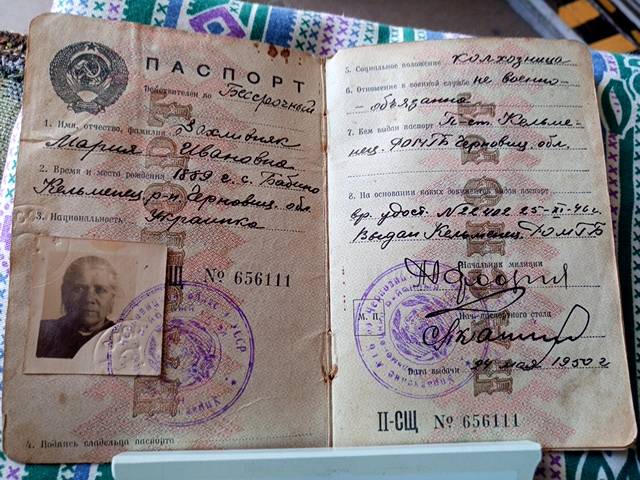 ПАСПОРТ
Действителен до Бессрочный
1. Имя, отчество, фамилия
Мария Ивановна
2. Время и место рождения 1889 г. с. Бабино
Кельменец. р-н Черновиц. обл.
3. Национальность Украинка
II-СЩ № 656111
4. Подпись владельца паспорта
5. Социальное положение колхозница
6. Отношение к военной службе не военно-
- обязанна
7. Кем выдан паспорт П-ст. Кельме-
нец. РОМГБ Черновиц. обл.
8. На основании каких документов выдан паспорт
вр. удост. № 22402 25-XI-46 г.
Выдан Кельменец. РОМГБ
Начальник милиции
М. П.
Нач. паспортного стола
Дата выдачи мая 1950 г
II-СЩ № 656111